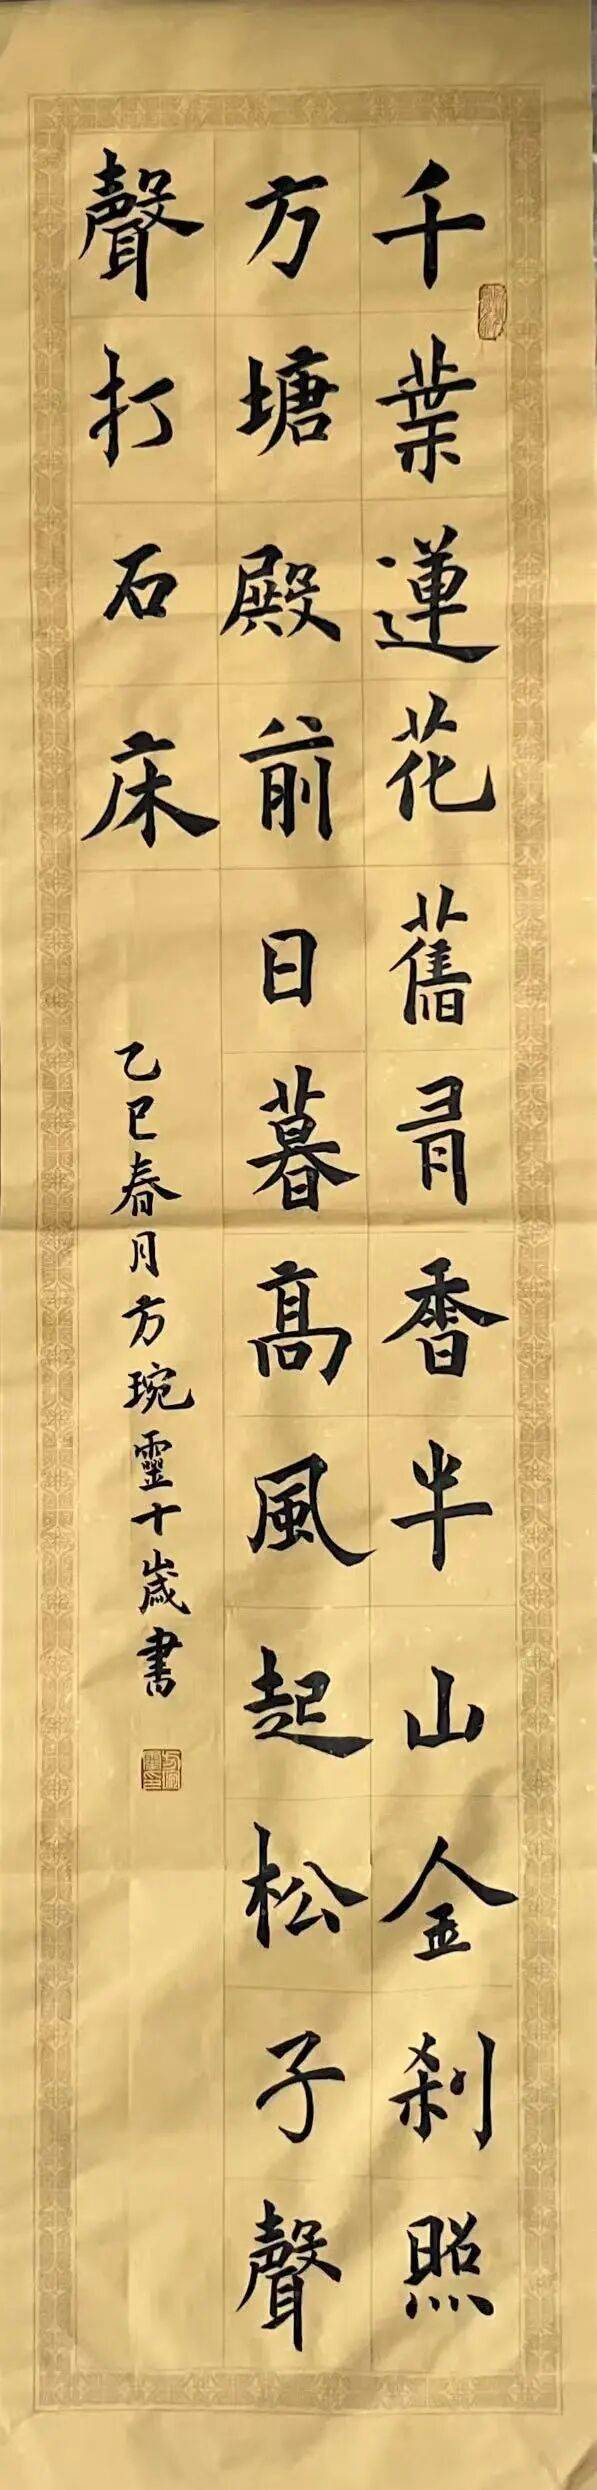 千葉蓮花舊有香半山金刹照
方塘殿前日暮高風起松子聲
聲打石床
乙巳春月方琬靈十歲書